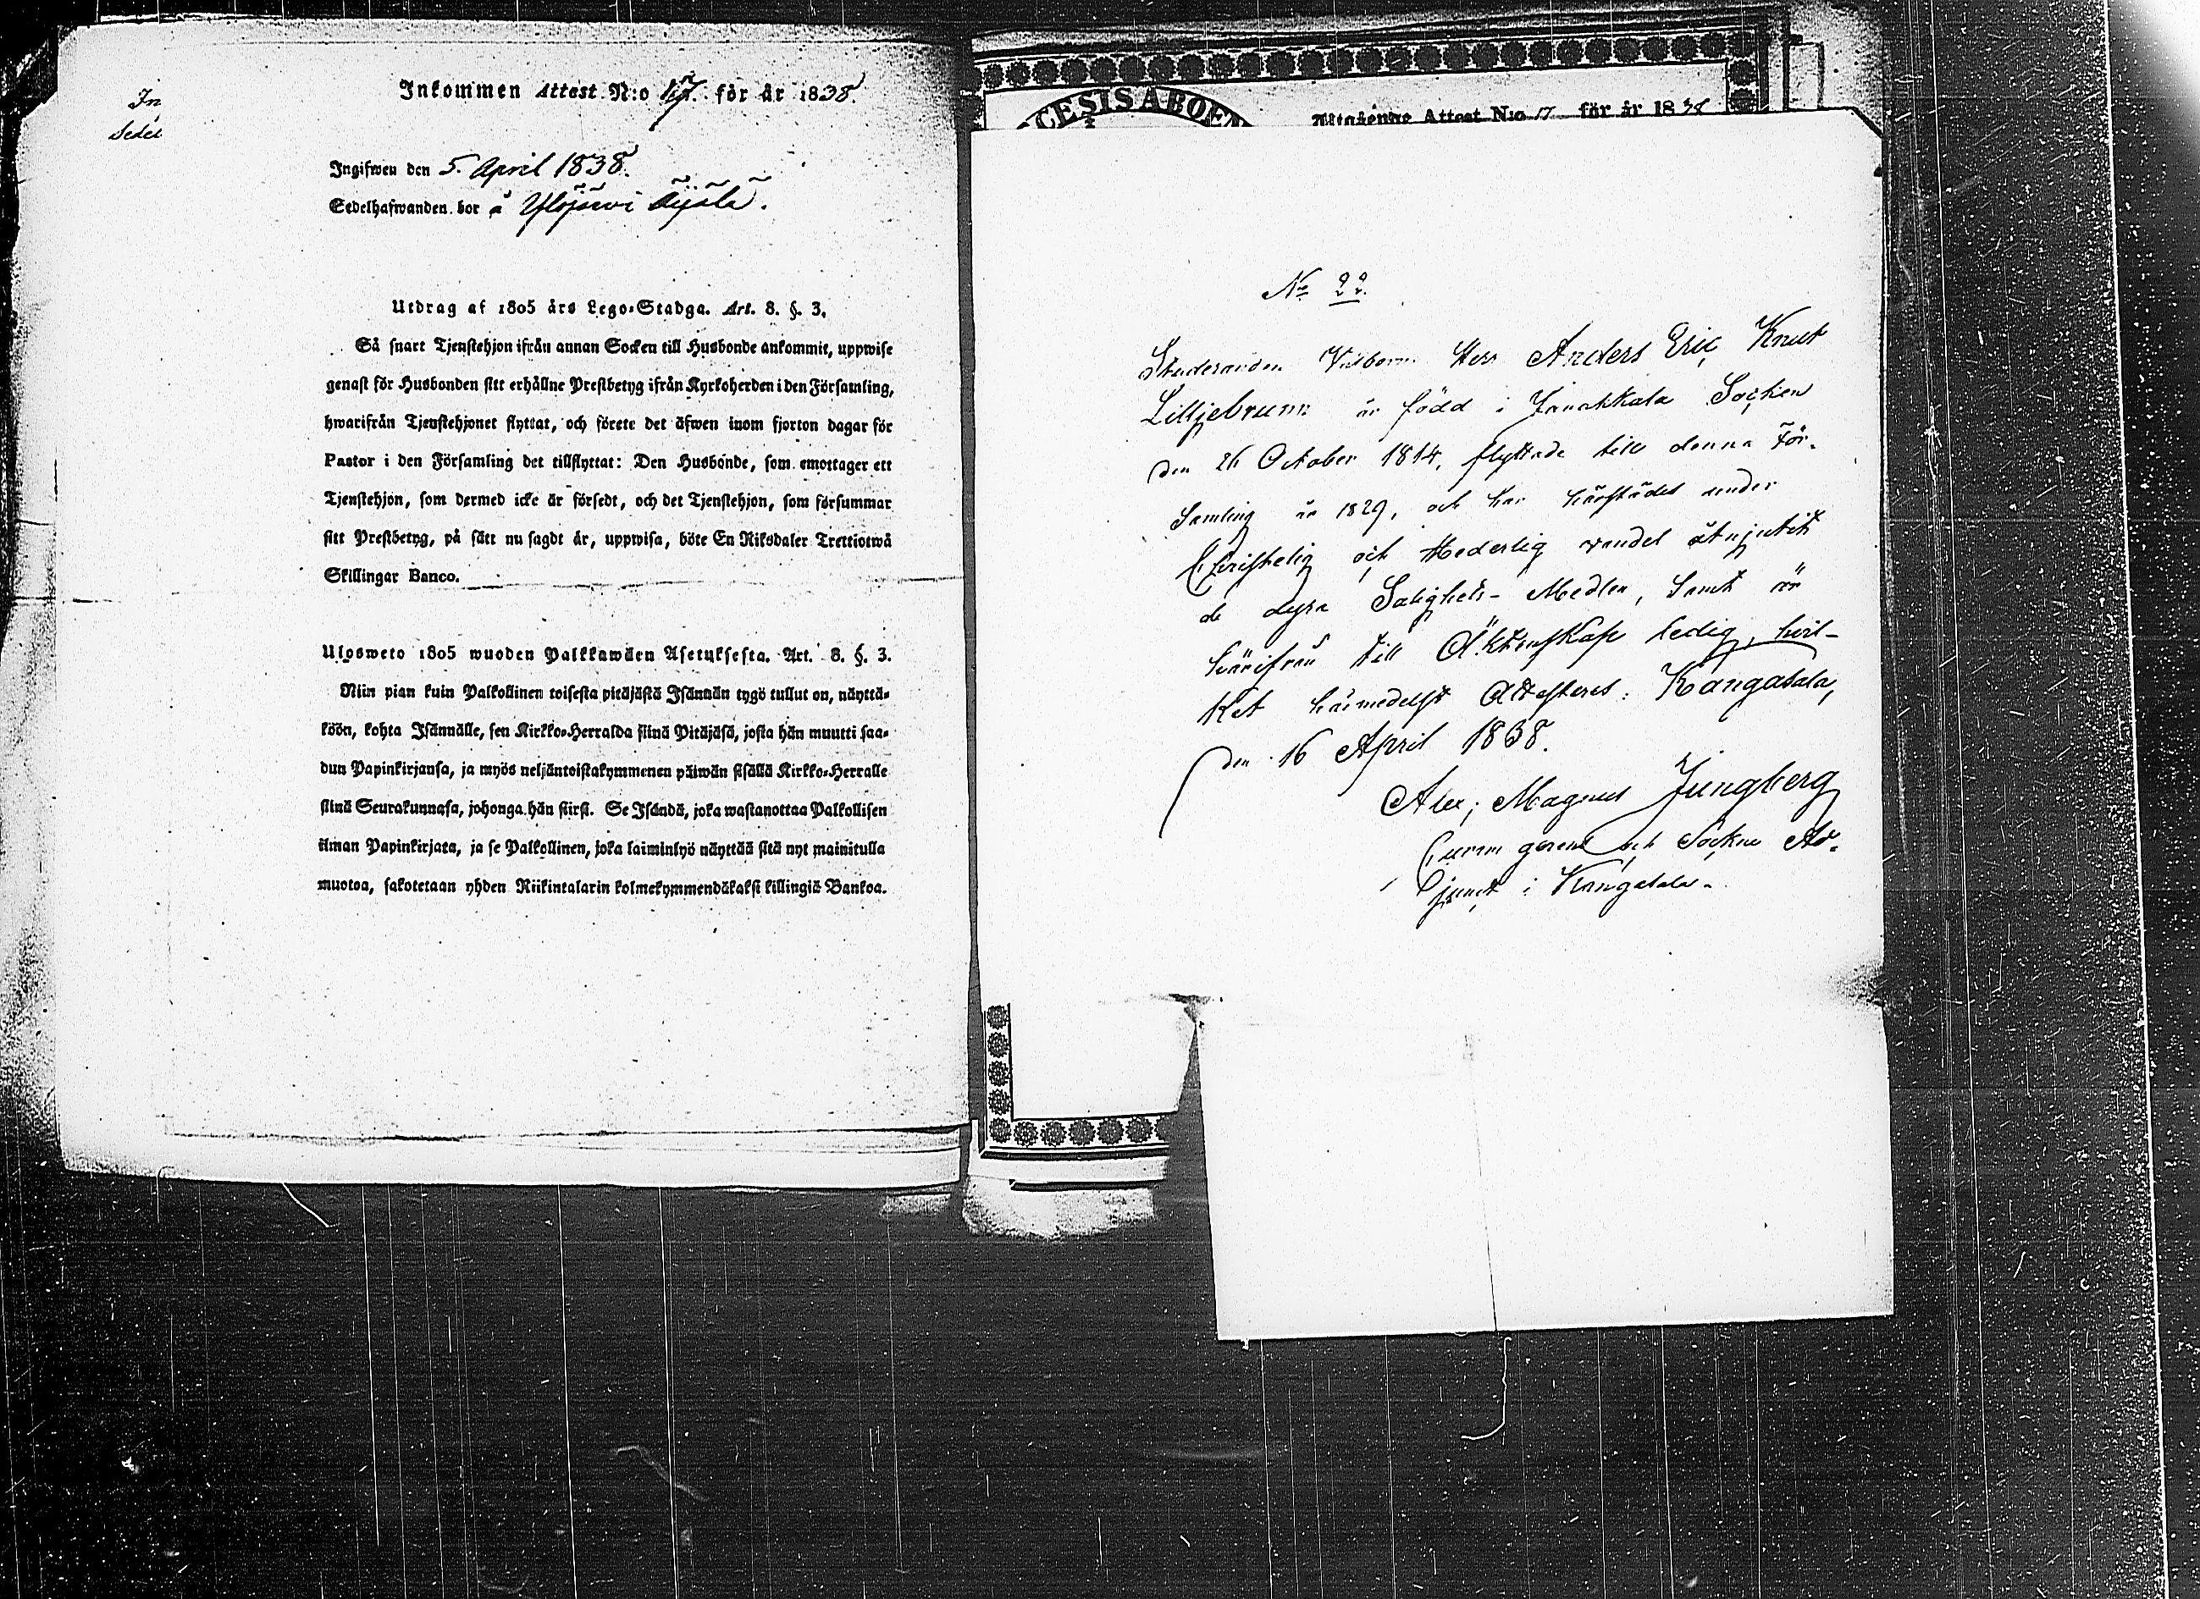 In
Sedel
Inkommen Attest N:o 17. för år 1838.
Ingifwen den 5. April 1838.
Sedelhafwanden bor å Ylöjärvi Äijälä.
Utdrag af 1805 års Lego-Stadga. Art. 8. §. 3.
Så snart Tjenstehjon ifrån annan Socken till Husbonde ankommit, uppwise
genast för Husbonden sitt erhållne Prestbetyg ifrån Kyrkoherden i den Församling,
hwarifrån Tjenstehjonet flyttat, och förete det äfwen inom fjorton dagar för
Pastor i den Församling det tillflyttat: Den Husbonde, som emottager ett
Tjenstehjon, som dermed icke är försedt, och det Tjenstehjon, som försummar
sitt Prestbetyg, på sätt nu sagdt är, uppwisa, böte En Riksdaler Trettiotwå
Skillingar Banco.
Ulosweto 1805 wuoden Palkkawäen Asetuksesta. Art. 8. §. 3.
Niin pian kuin Palkollinen toisesta pitäjästä Isännän tygö tullut on, näyttä-
köön, kohta Isännälle, sen Kirkko-Herralda siinä Pitäjäsä, josta hän muutti saa-
dun Papinkirjansa, ja myös neljäntoistakymmenen päiwän sisällä Kirkko-Herralle
siinä Seurakunnasa, johonga hän siirsi. Se Isändä, joka wastanottaa Palkollisen
ilman Papinkirjata, ja se Palkollinen, joka laiminlyö näyttää sitä nyt mainitulla
muotoa, sakotetaan yhden Riikintalarin kolmekymmendäkaksi killingiä Bankoa.
CESIS ABOEN
Utgående Attest N:o 17 för år 1838
No 22.
Studeranden Välborne Herr Anders Eric Knut
Lilljebrunn är född i Janakkala Socken
den 26 October 1814, flyttade till denna För-
samling år 1829, och har härstädes under
Christelig och Hederlig vandel åtnjutit
de dyra Salighets-Medlen, samt är
härifrån till Äktenskap ledig, hvil-
ket härmedelst Attesteres: Kangasala,
den 16 April 1838.
Alex; Magnus Jungberg
Curam gerens och Sockne Ad-
junct i Kangasala.